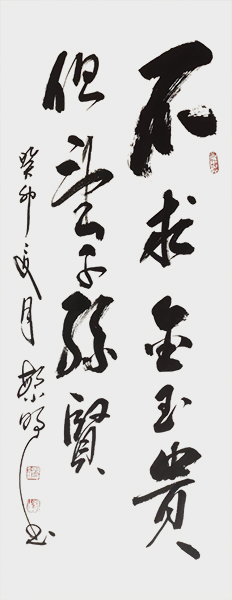 不求金玉貴
但望子孫賢
癸卯夏月